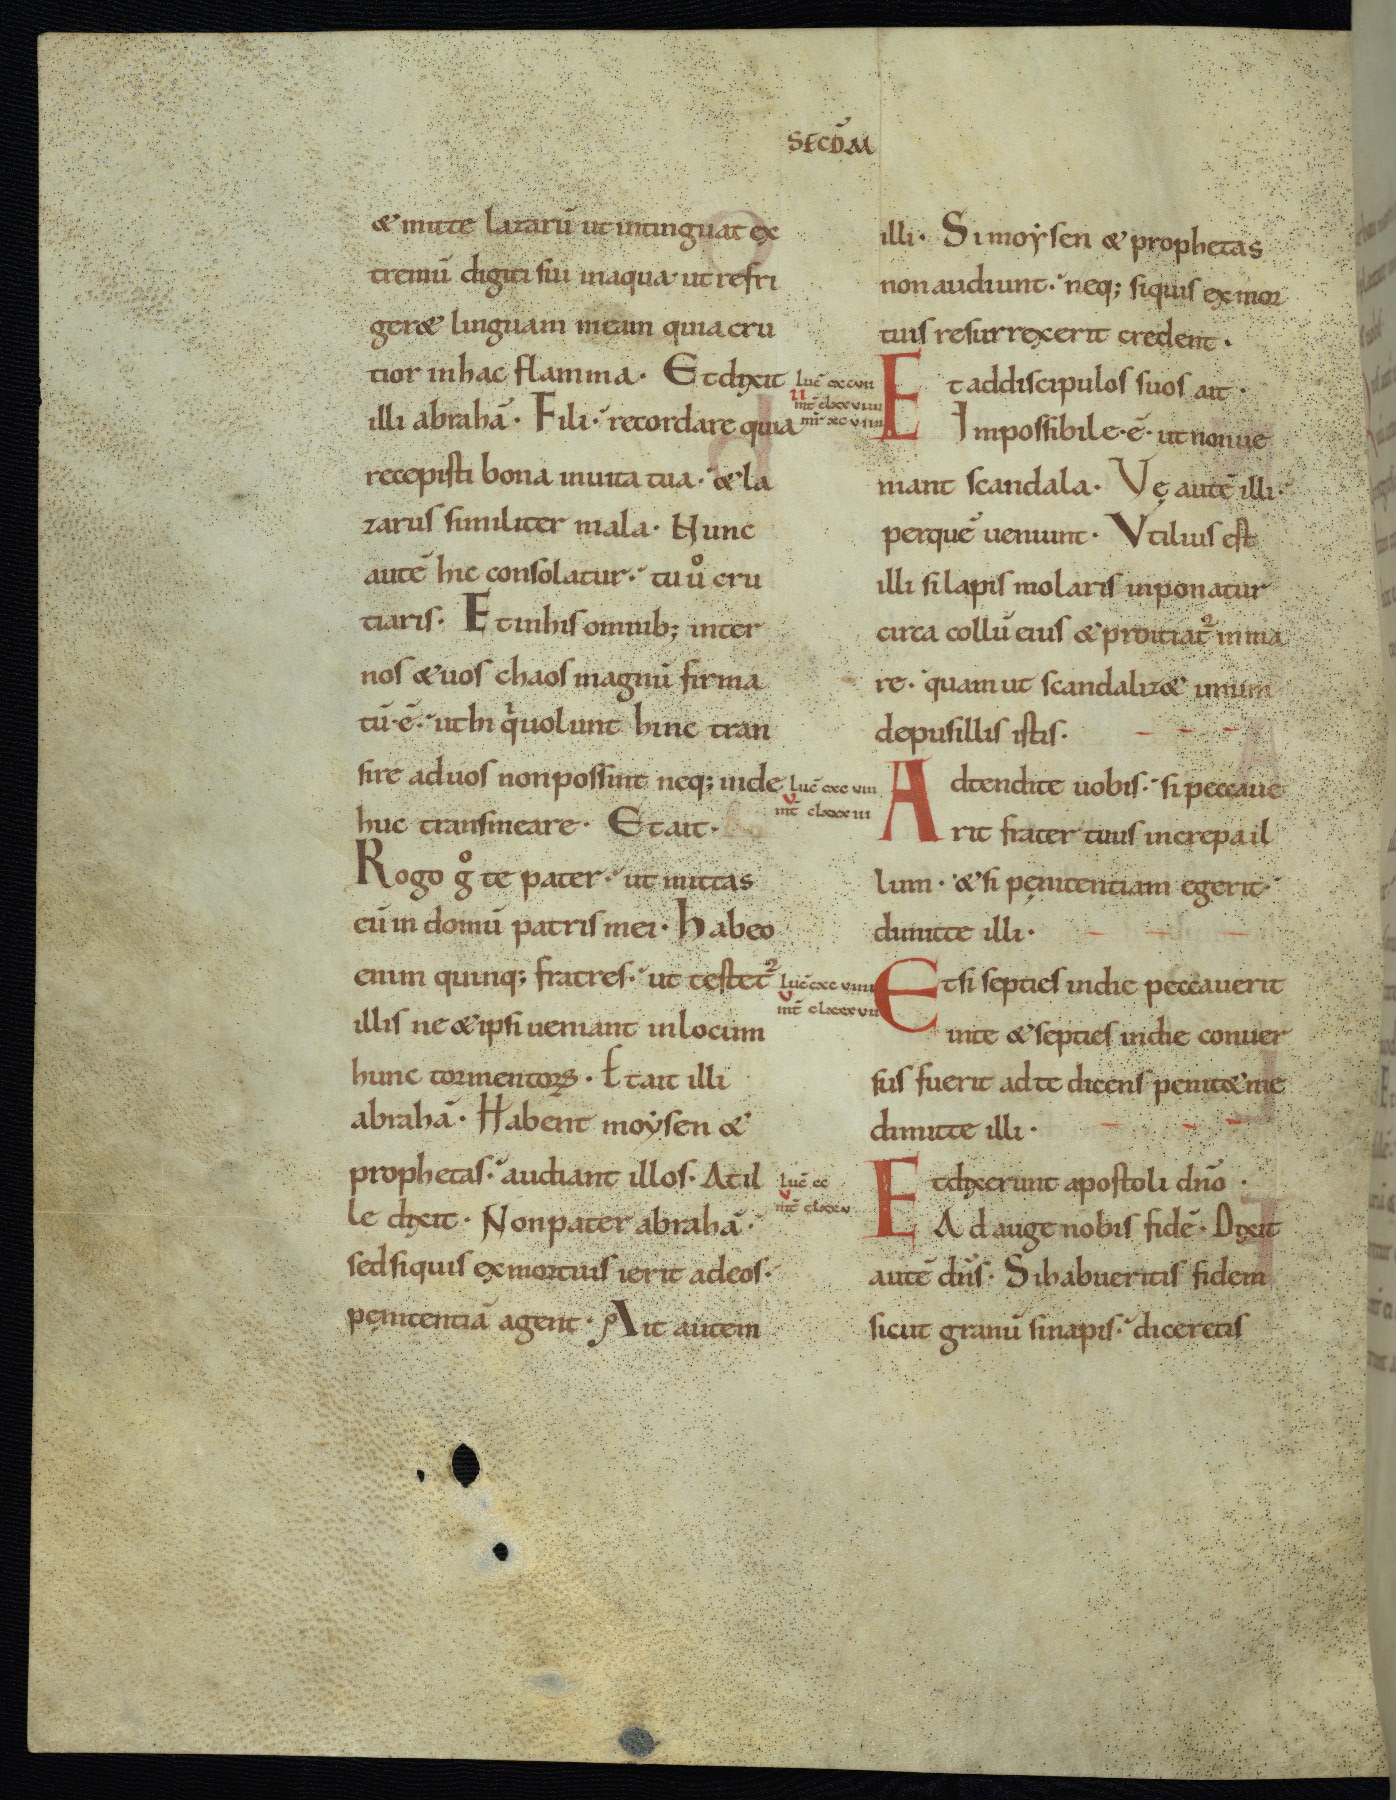 SECDM̄
& mitte lazarū ut intinguat ex
tremū digiti sui in aqua ut refri
ger& linguam meam quia cru
tior in hac flamma. Et dixit
illi abrahā. Fili. recordare quia
recepisti bona in uita tua. & la
zarus similiter mala. Hunc
autē hic consolatur. tu ů cru
tiaris. Et in his omnib; inter
nos & uos chaos magnū firma
tū.ē. ut hi q̇ uolunt hinc tran
sire ad uos non possint neq; inde
huc transmeare. Et ait.
Rogo g̊ te pater. ut mittas
eū in domū patris mei. Habeo
enim quinq; fratres. ut testet᷑
illis ne & ipsi ueniant in locum
hunc tormentoꝝ. Et ait illi
abrahā. Habent moẏsen &
prophetas. audiant illos. At il
le dixit. Non pater abrahā.
sed siquis ex mortuis ierit ad eos.
pęnitentiā agent. Ait autem
illi. Si moẏsen & prophetas
non audiunt. neq; siquis ex mor
tuis resurrexerit credent.
Luc̄ cxcvii
Et ad discipulos suos ait.
II
mt̄ clxxviiii
mr̄ xcviiii
Impossibile.ē. ut non ue
niant scandala. Vę autē illi.
per quē ueniunt. Vtilius est
illi si lapis molaris inponatur
circa collū eius & proitiat᷑ in ma
re. quam ut scandaliz& unum
de pusillis istis.
Luc̄ cxcviii
Adtendite uobis. si peccaue
V
mt̄ clxxxiii
rit frater tuus increpa il
lum. & si pęnitentiam egerit.
dimitte illi.
Luc̄ cxcviiii
Et si septies in die peccauerit
V
mt̄ clxxxvii
in te & septies in die conuer
sus fuerit ad te dicens penit& me
dimitte illi.
Luc̄ cc
Et dixerunt apostoli dn̄o.
V
mt̄ clxxv
Ad auge nobis fidē. Dixit
autē dn̄s. Si habueritis fidem
sicut granū sinapis. diceretis